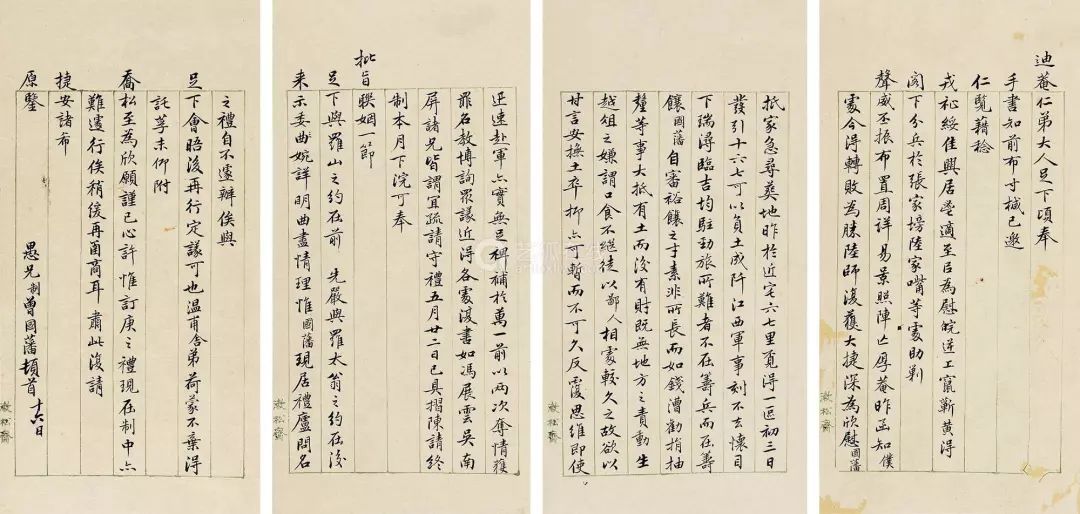 迪菴仁弟大人足下頃奉
手書知前布寸椷已邀
仁覽藉稔
戎祉綏佳興居叠適至以為慰皖逆上竄蘄黄得
閣下分兵於張家塝陸家嘴等處助剿
聲威丕振布置周詳易景照陣亡厚菴昨函知僕
處今得轉敗為勝陸師復獲大捷深為欣慰國藩
敬松齋
抵家急尋葬地昨於近宅六七里覓得一區初三日
發引十六七可以負土成阡江西軍事刻不去懷目
下瑞潯臨吉均駐勁旅所難者不在籌兵而在籌
饟國藩自審裕饟之才素非所長而如錢漕勸捐抽
釐等事大抵有土而後有財既無地方之責動生
越俎之嫌謂口食不繼徒以鄙人相處較久之故欲以
甘言安撫士卒抑亦可暫而不可久反覆思維即使
敬松齋
迅速赴軍亦實無裨補於萬一前以兩次奪情獲
罪名教博詢眾議近得各處復書如馮展雲吳南
屏諸兄皆謂宜疏請守禮五月廿二日已具摺陳請終
制本月下浣可奉
批旨
聯姻一節
足下與羅山之約在前 先嚴與羅太翁之約在後
来示委曲婉詳明曲盡情理惟國藩現居禮廬問名
敬松齋
之禮自不遽辦俟與
足下會晤後再行定議可也温甫舍弟荷蒙不棄得
託葭末仰附
喬松至為欣願謹已心許惟訂庚之禮現在制中亦
難遽行俟稍緩再函商耳肅此復請
捷安諸布
原鑒
愚兄制曾國藩頓首 十六日
敬松齋